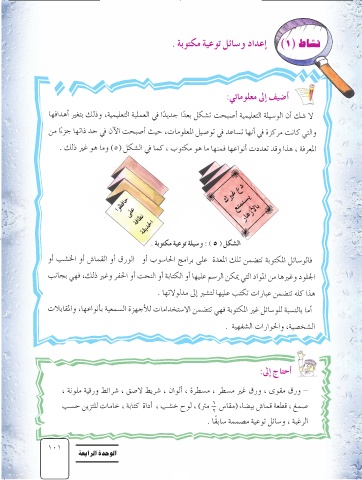 نشاط (١) إعداد وسائل توعية مكتوبة .
أضيف إلى معلوماتي:
لا شك أن الوسيلة التعليمية أصبحت تشكل بعدًا جديدًا في العملية التعليمية، وذلك بتغير أهدافها
والتي كانت مركزة في أنها تساعد في توصيل المعلومات، حيث أصبحت الآن في حد ذاتها جزءًا من
المعرفة ، هذا وقد تعددت أنواعها فمنها ما هو مكتوب ، كما في الشكل (٥) وما هو غير ذلك .
حافظوا
على
نظافة
الحديقة
دع غيرك
يستمتع
بالأزهار
الشكل ( ٥ ) : وسيلة توعية مكتوبة .
فالوسائل المكتوبة تتضمن تلك المعدة على برامج الحاسوب أو الورق أو القماش أو الخشب أو
الجلود وغيرها من المواد التي يمكن الرسم عليها أو الكتابة أو النحت أو الحفر وغير ذلك، فهي بجانب
هذا كله تتضمن عبارات تكتب عليها لتشير إلى مدلولاتها .
أما بالنسبة للوسائل غير المكتوبة فهي تتضمن الاستخدامات للأجهزة السمعية بأنواعها، والمقابلات
الشخصية، والحوارات الشفهية .
أحتاج إلى:
– ورق مقوى ، ورق غير مسطر ، مسطرة ، ألوان ، شريط لاصق ، شرائط ورقية ملونة ،
صمغ ، قطعة قماش بيضاء (مقاس متر) ، لوح خشب ، أداة كتابة ، خامات للتزيين حسب
الرغبة ، وسائل توعية مصممة سابقًا .
الوحدة الرابعة
١٠١